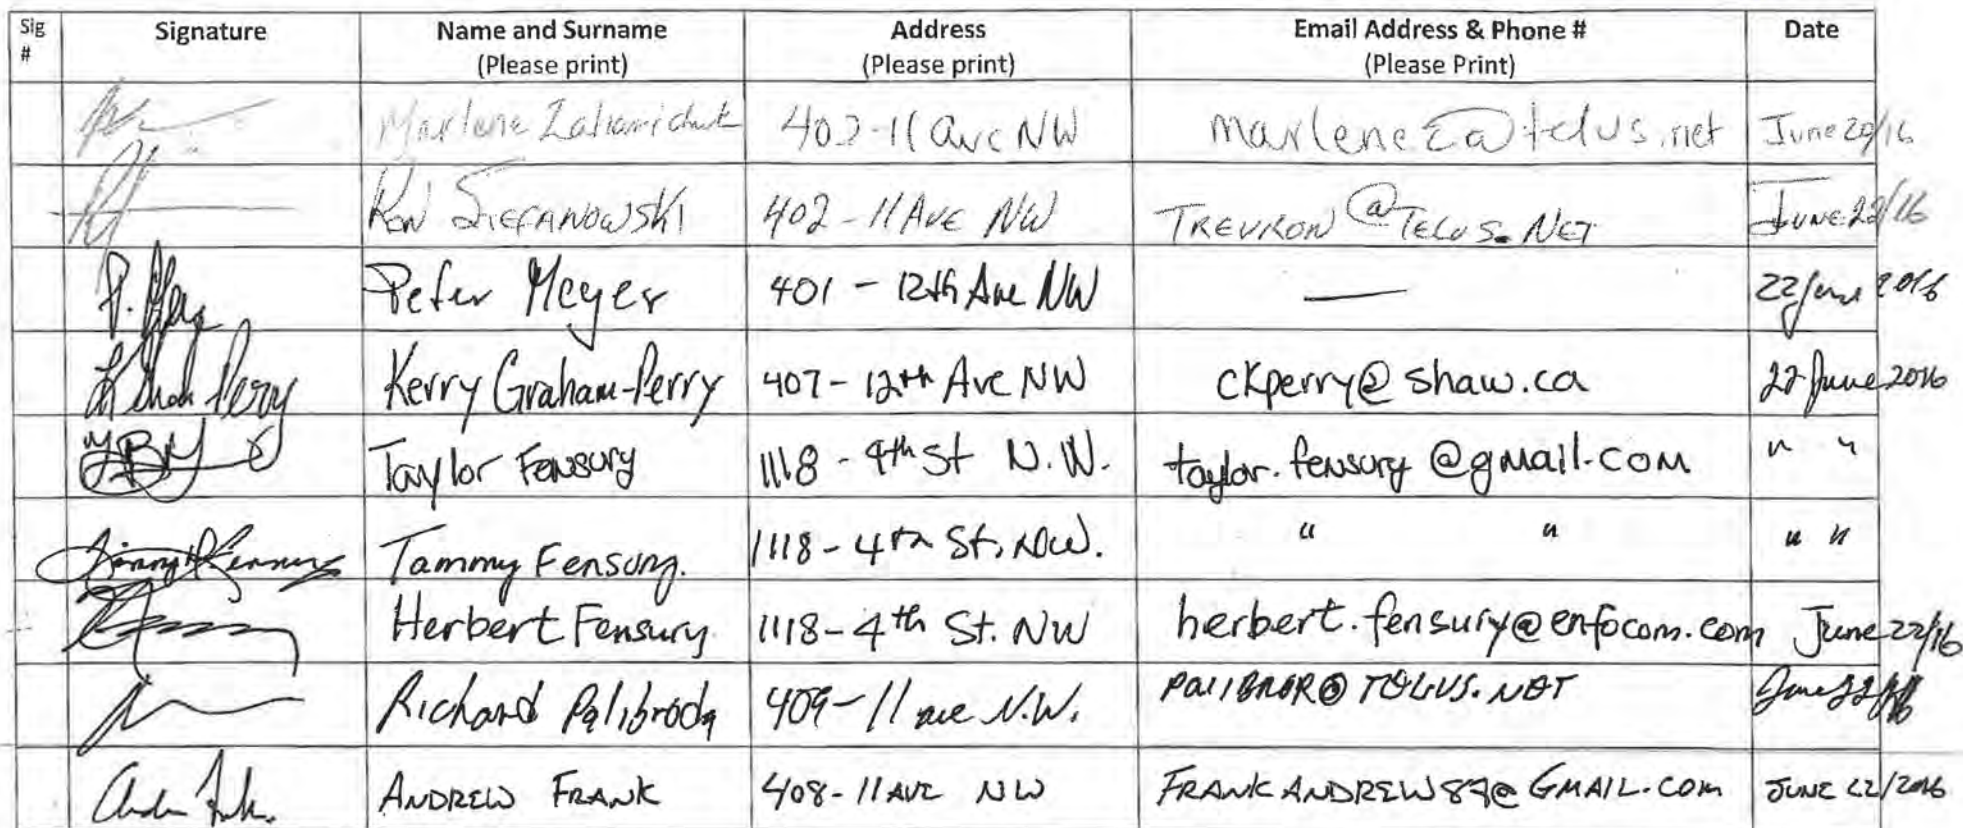 Sig # Signature Name and Surname (Please print) Address (Please print) Email Address & Phone # (Please Print) Date
Marlene 402-11 ave NW marleneza@telus.net June 20/16
Ron Stefanowski 402-11 Ave NW Trevron@Telus.Net June 22/16
P. Peter Meyer 401 - 12th Ave NW — 22 June 2016
Perry Kerry Graham-Perry 407- 12th Ave NW ckperry@shaw.ca 22 June 2016
Taylor Fensury 1118 - 4th St N.W. taylor.fensury@gmail.com " "
Tammy Fensury. 1118- 4th St. NW. " " " "
Herbert Fensury 1118- 4th St. NW herbert.fensury@enfocom.com June 22/16
Richard Palibroda 409-11 ave N.W. June 22/16
ANDREW FRANK 408-11 AVE NW FRANKANDREW89@GMAIL.COM JUNE 22/2016